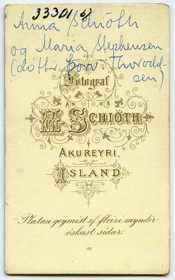 33301
Anna Schiöth
og Maria Stephensen
(dóttir Þorv Thorodd-
sen)
Fotograf
H. SCHIÖTH
AKUREYRI,
ISLAND
Platan geymist ef fleiri myndir
óskast siðar.